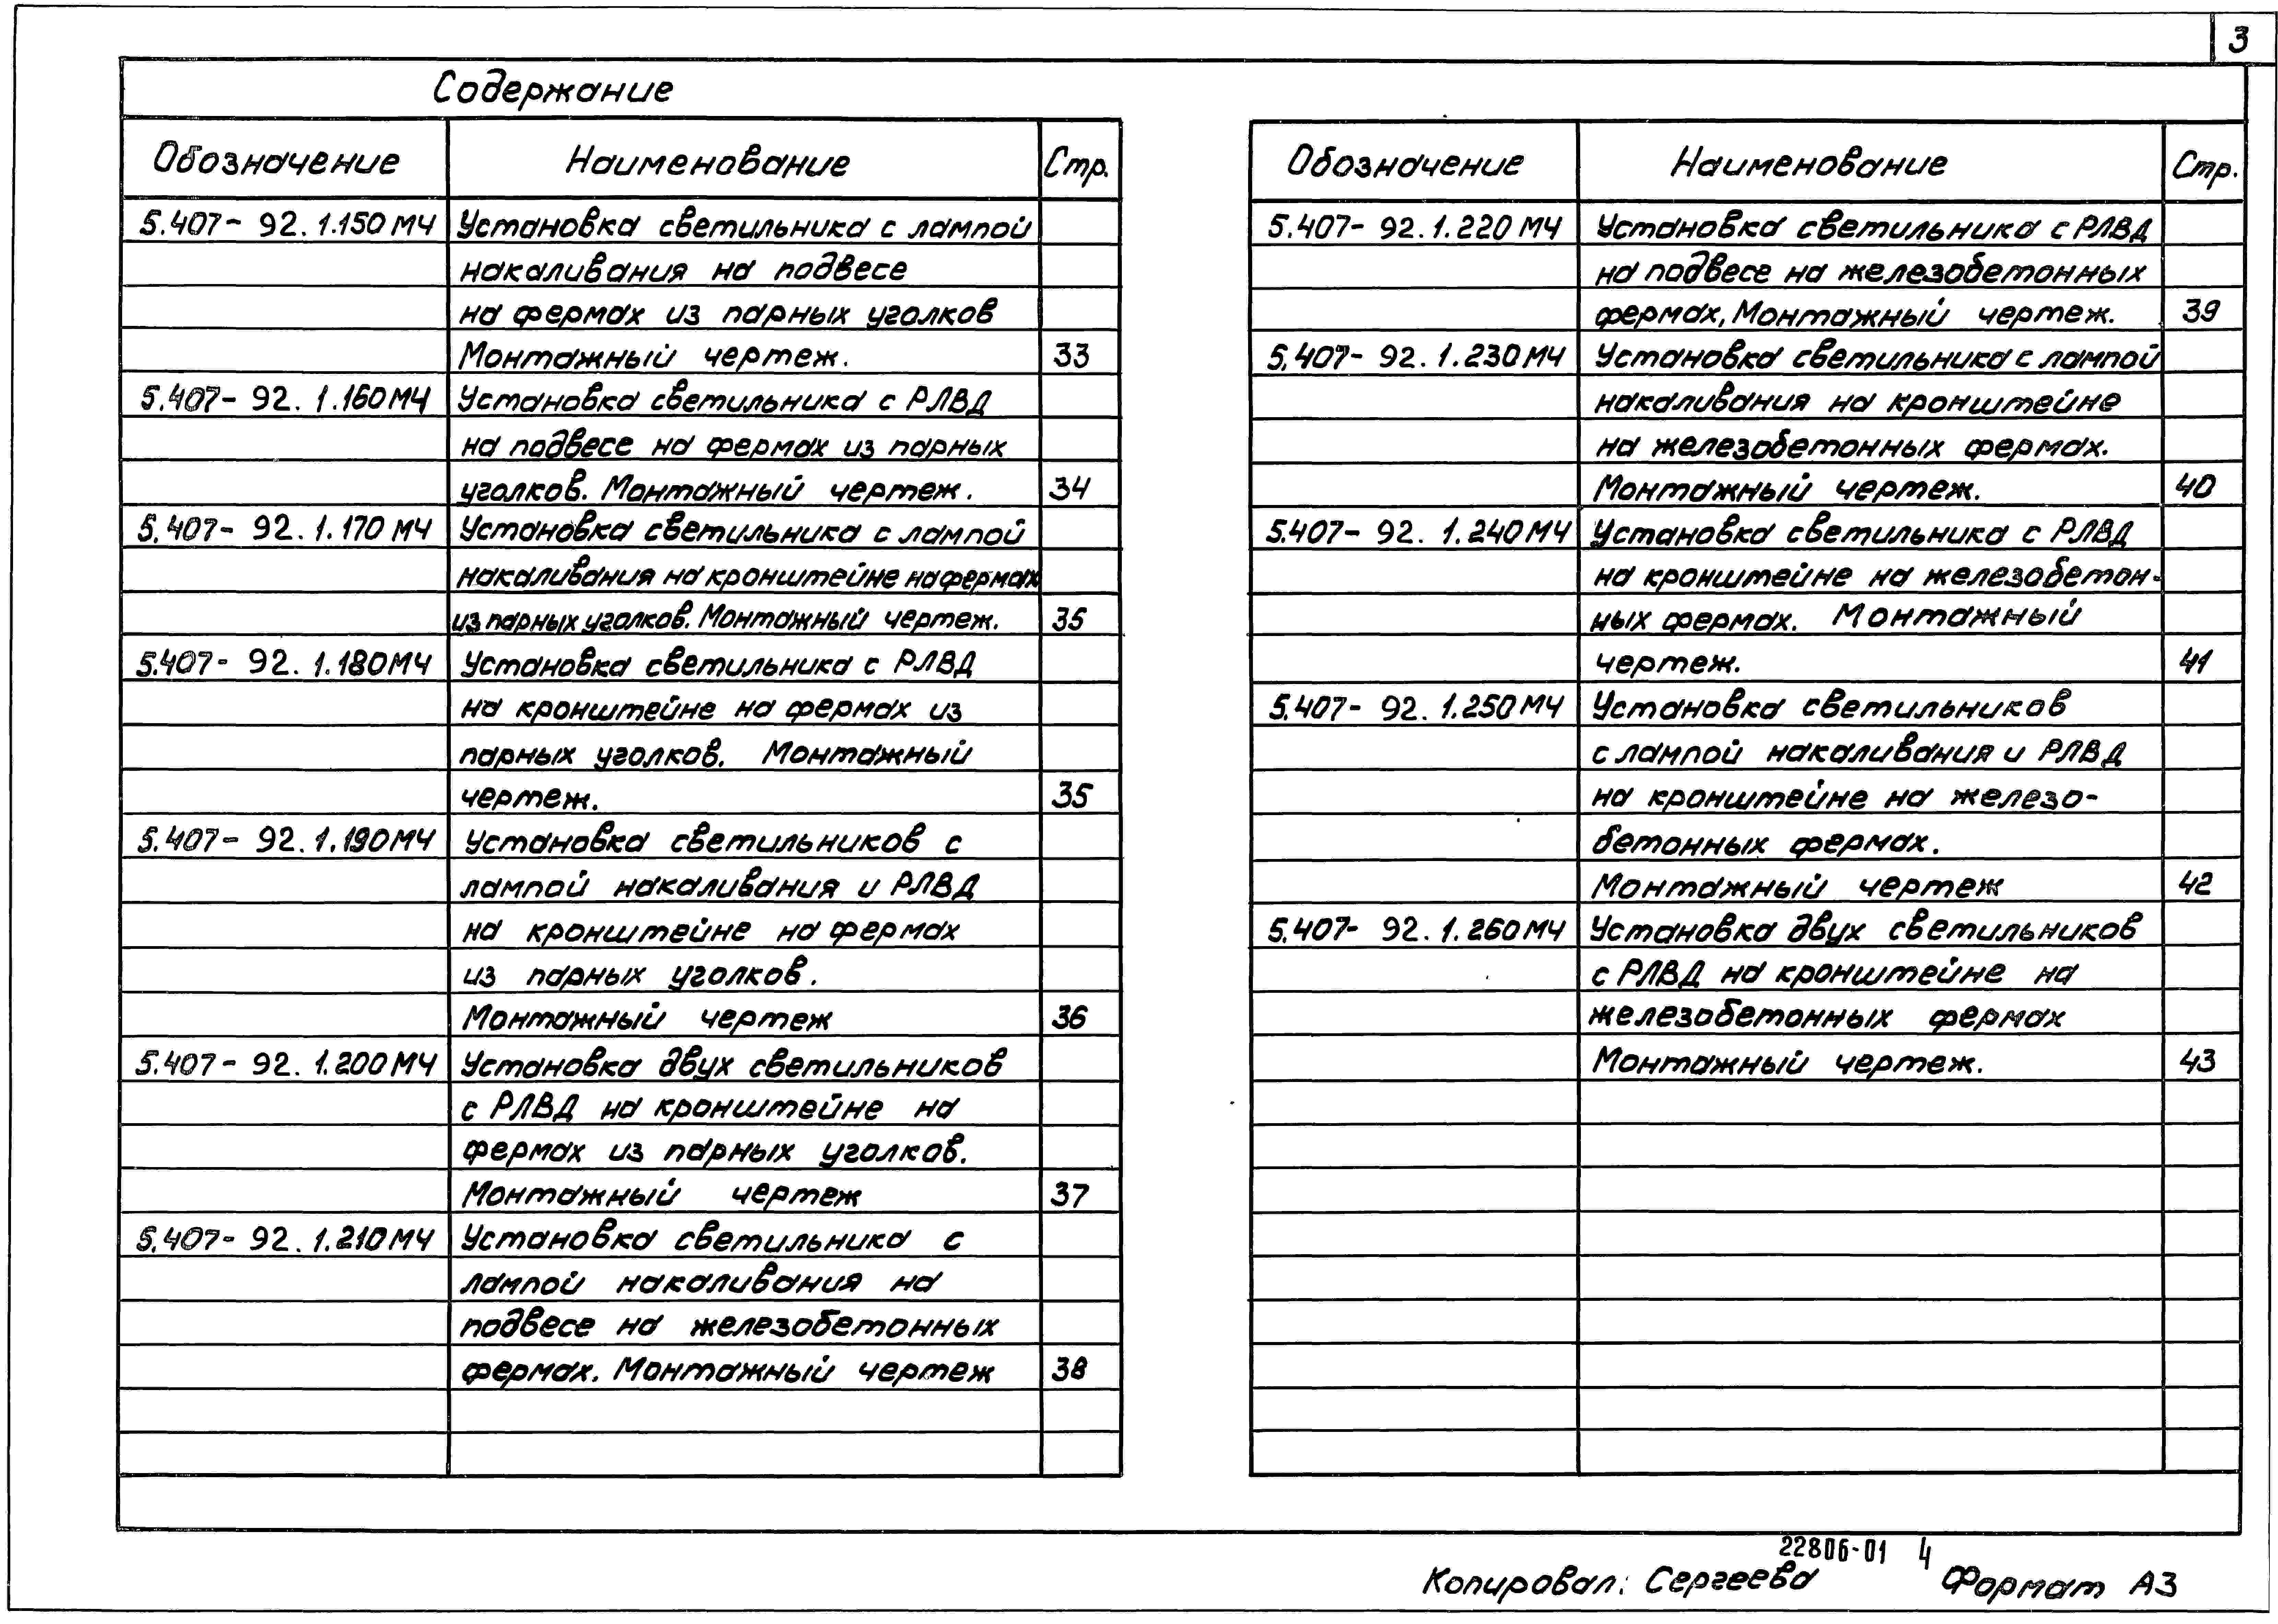 3
Содержание
Обозначение Наименование Стр.
5.407-92.1.150МЧ Установка светильника с лампой
накаливания на подвесе
на фермах из парных уголков
Монтажный чертеж. 33
5.407-92.1.160МЧ Установка светильника с РЛВД
на подвесе на фермах из парных
уголков. Монтажный чертеж. 34
5.407-92.1.170МЧ Установка светильника с лампой
накаливания на кронштейне на фермах
из парных уголков. Монтажный чертеж. 35
5.407-92.1.180МЧ Установка светильника с РЛВД
на кронштейне на фермах из
парных уголков. Монтажный
чертеж. 35
5.407-92.1.190МЧ Установка светильников с
лампой накаливания и РЛВД
на кронштейне на фермах
из парных уголков.
Монтажный чертеж 36
5.407-92.1.200МЧ Установка двух светильников
с РЛВД на кронштейне на
фермах из парных уголков.
Монтажный чертеж 37
5.407-92.1.210МЧ Установка светильника с
лампой накаливания на
подвесе на железобетонных
фермах. Монтажный чертеж 38
Обозначение Наименование Стр.
5.407-92.1.220МЧ Установка светильника с РЛВД
на подвесе на железобетонных
фермах, Монтажный чертеж. 39
5.407-92.1.230МЧ Установка светильника с лампой
накаливания на кронштейне
на железобетонных фермах.
Монтажный чертеж. 40
5.407-92.1.240МЧ Установка светильника с РЛВД
на кронштейне на железобетон-
ных фермах. Монтажный
чертеж. 41
5.407-92.1.250МЧ Установка светильников
с лампой накаливания и РЛВД
на кронштейне на железо-
бетонных фермах.
Монтажный чертеж 42
5.407-92.1.260МЧ Установка двух светильников
с РЛВД на кронштейне на
железобетонных фермах
Монтажный чертеж. 43
22806-01 4
Копировал: Сергеева Формат А3